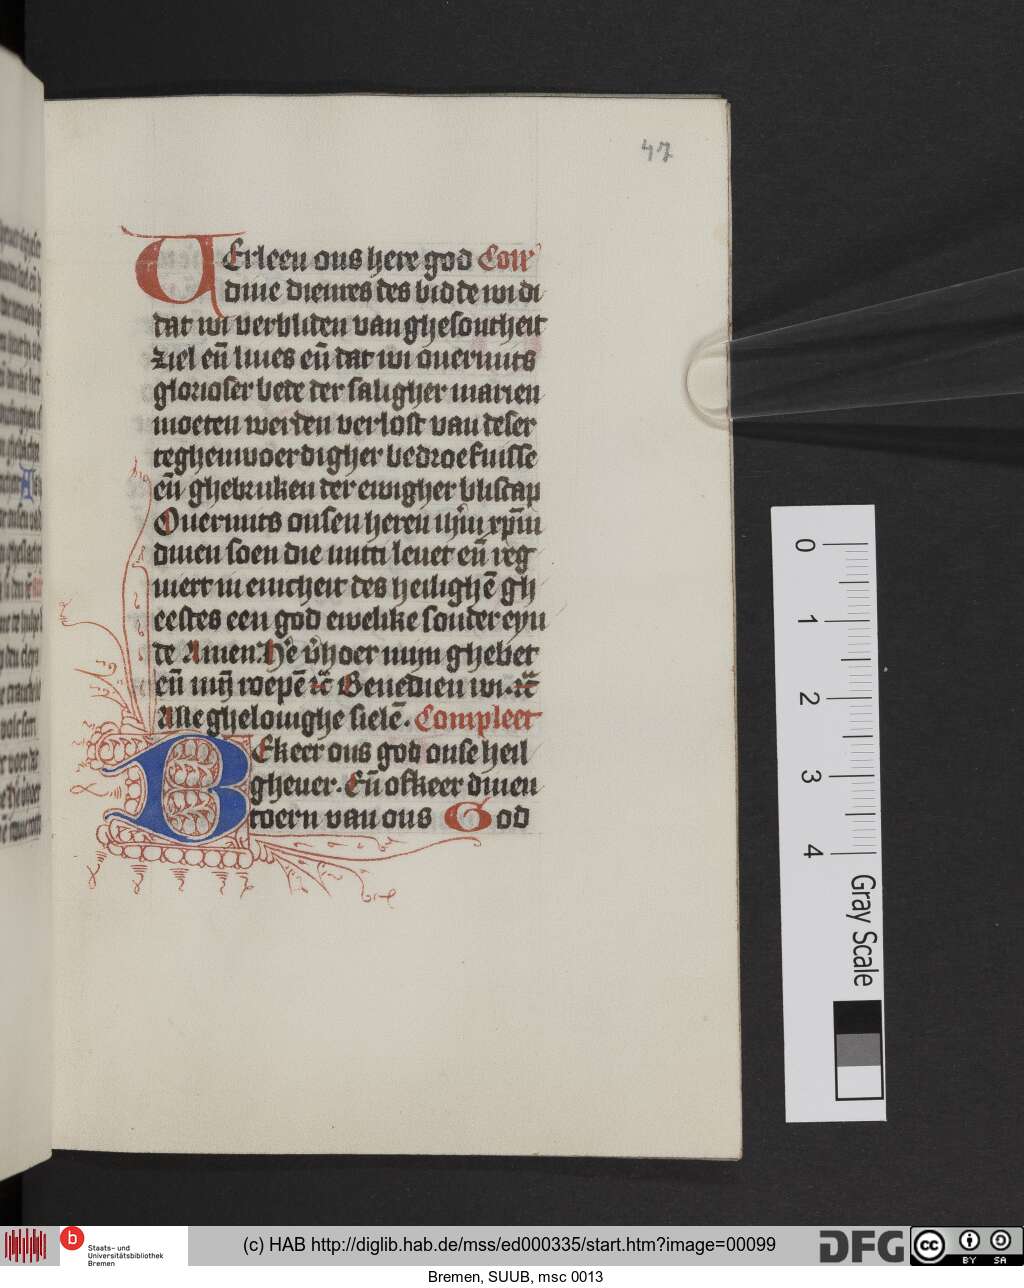 47
VErleen ons here god Coll'
dine dienres des bidde wi di
dat wi verbliden van ghesontheit
ziel en̄ liues en̄ dat wi ouermits
glorioser bede der saligher marien
moeten werden verlost van deser
teghenwoerdigher bedroefnisse
en̄ ghebruken der ewigher bliscap
Ouermits onsen heren ih̄m xp̄m
dinen soen die mitti leuet en̄ reg
niert in enicheit des heilighē gh
eestes een god ewelike sonder eyn
de Amen. He v̓hoer mijn ghebet
en̄ mij̄ roepē rc̄ Benedien wi. rc̄
Alle ghelouighe sielē. Compleet
BEkeer ons god onse heil
gheuer. En̄ ofkeer dinen
toern van ons God
0
1
2
3
4
Gray Scale
b
Staats- und
Universitätsbibliothek
Bremen
(c) HAB http://diglib.hab.de/mss/ed000335/start.htm?image=00099
DFG
cc
BY SA
Bremen, SUUB, msc 0013